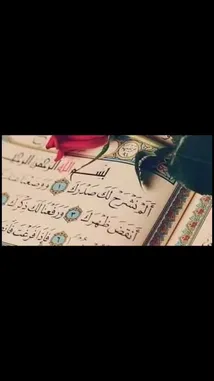 بِسْمِ اللَّهِ الرَّحْمَٰنِ
أَلَمْ نَشْرَحْ لَكَ صَدْرَكَ ١ وَوَضَعْنَا
أَنقَضَ ظَهْرَكَ ٣ وَرَفَعْنَا لَكَ ذِكْرَكَ
فَإِذَا فَرَغْتَ فَانصَبْ